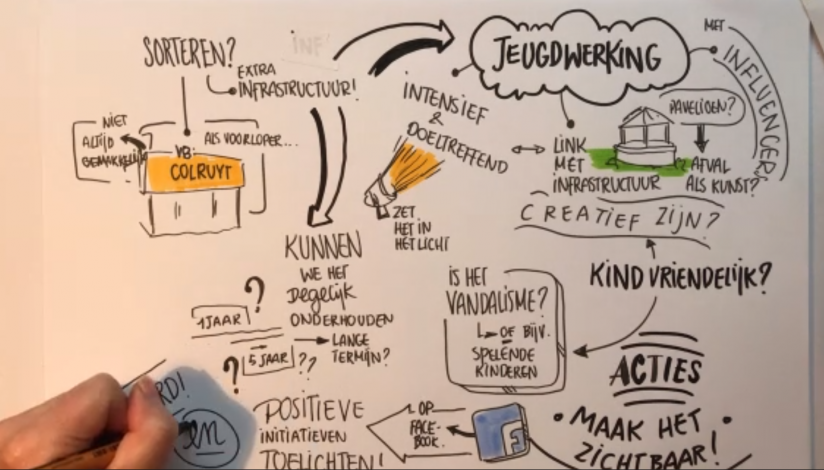 SORTEREN?
EXTRA
INFRASTRUCTUUR!
NIET
ALTIJD
GEMAKKELIJK
VB:
COLRUYT
ALS VOORLOPER...
JEUGDWERKING
MET
INFLUENCERS
INTENSIEF
&
DOELTREFFEND
ZET
HET IN
HET LICHT
LINK
MET
INFRASTRUCTUUR
PAVELJOEN?
AFVAL
ALS KUNST?
CREATIEF ZIJN?
KUNNEN
WE HET
DEGELIJK
ONDERHOUDEN
LANGE
TERMIJN?
?
1 JAAR
?
5 JAAR
??
IS HET
VANDALISME?
OF BIJV.
SPELENDE
KINDEREN
KINDVRIENDELIJK?
ACTIES
• MAAK HET •
ZICHTBAAR!
OP
FACE-
BOOK.
f
POSITIEVE
INITIATIEVEN
TOELICHTEN!